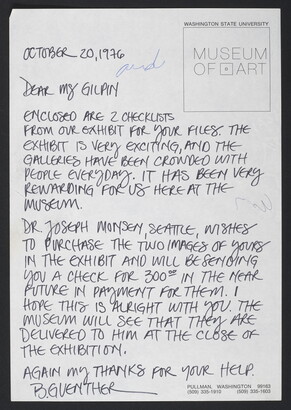 WASHINGTON STATE UNIVERSITY
MUSEUM
OF ART
OCTOBER 20, 1976
DEAR MS GILPIN
ENCLOSED ARE 2 CHECKLISTS
FROM OUR EXHIBIT FOR YOUR FILES. THE
EXHIBIT IS VERY EXCITING, AND THE
GALLERIES HAVE BEEN CROWDED WITH
PEOPLE EVERYDAY. IT HAS BEEN VERY
REWARDING FOR US HERE AT THE
MUSEUM.
DR. JOSEPH MONSEN, SEATTLE, WISHES
TO PURCHASE THE TWO IMAGES OF YOURS
IN THE EXHIBIT AND WILL BE SENDING
YOU A CHECK FOR 300⁰⁰ IN THE NEAR
FUTURE IN PAYMENT FOR THEM. I
HOPE THIS IS ALRIGHT WITH YOU. THE
MUSEUM WILL SEE THAT THEY ARE
DELIVERED TO HIM AT THE CLOSE OF
THE EXHIBITION.
AGAIN MY THANKS FOR YOUR HELP.
B. GUENTHER
PULLMAN, WASHINGTON 99163
(509) 335-1910 (509) 335-1603